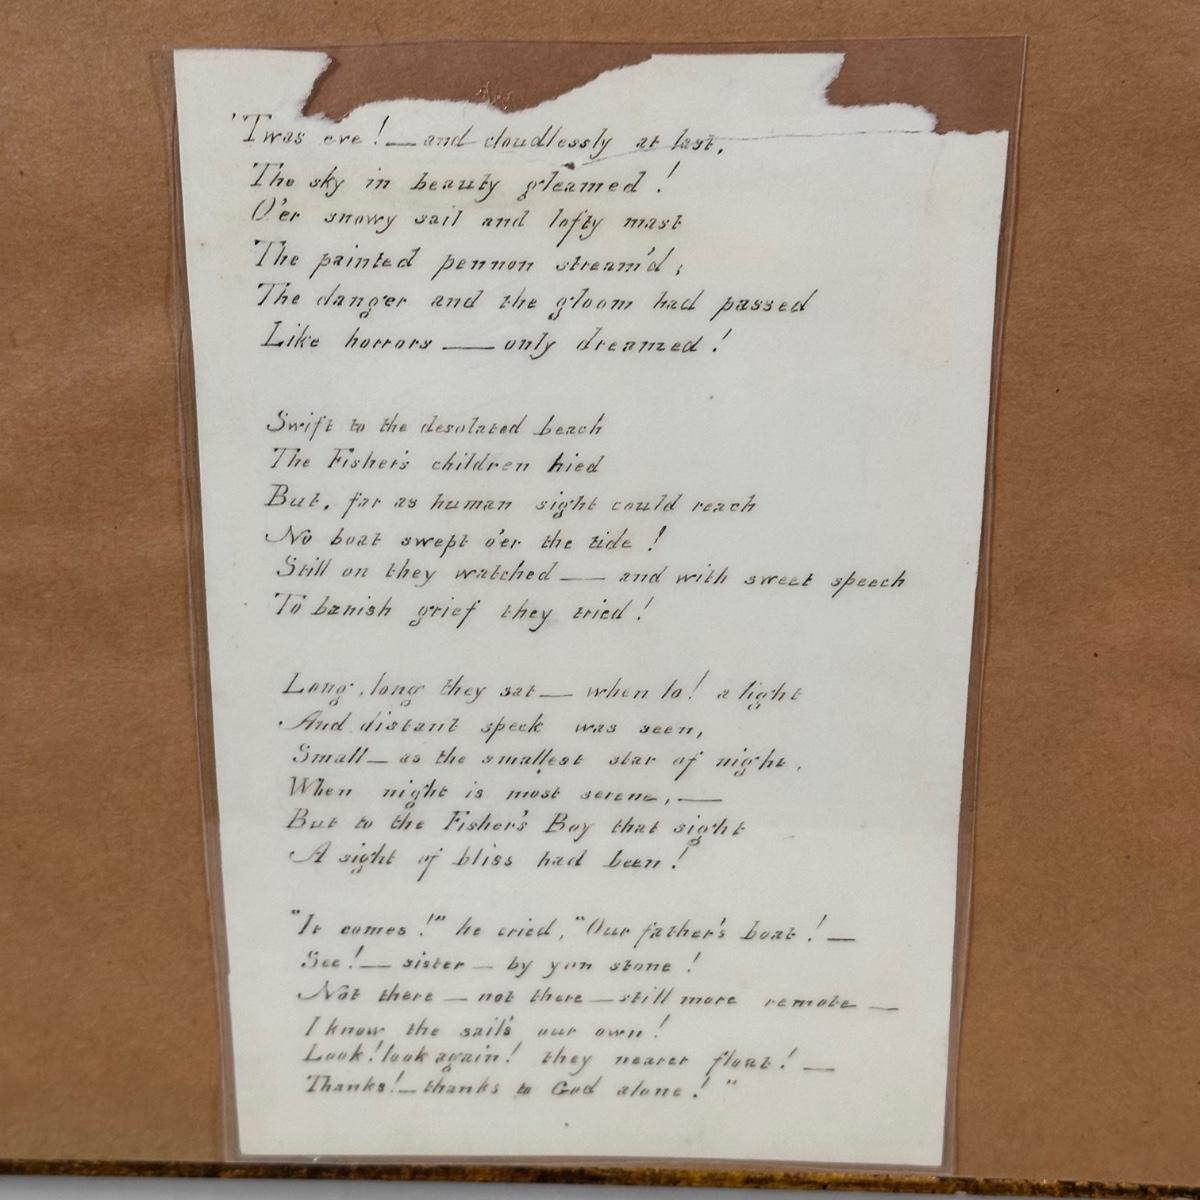 'Twas eve! — and cloudlessly at last,
The sky in beauty gleamed!
O'er snowy sail and lofty mast
The painted pennon stream'd;
The danger and the gloom had passed
Like horrors — only dreamed!
Swift to the desolated beach
The Fisher's children hied
But, far as human sight could reach
No boat swept o'er the tide!
Still on they watched — and with sweet speech
To banish grief they tried!
Long, long they sat — when lo! a light
And distant speck was seen,
Small — as the smallest star of night,
When night is most serene, —
But to the Fisher's Boy that sight
A sight of bliss had been!
"It comes!" he cried, "Our father's boat! —
See! — sister — by yon stone!
Not there — not there — still more remote —
I know the sail's our own!
Look! look again! they nearer float! —
Thanks! — thanks to God alone!"